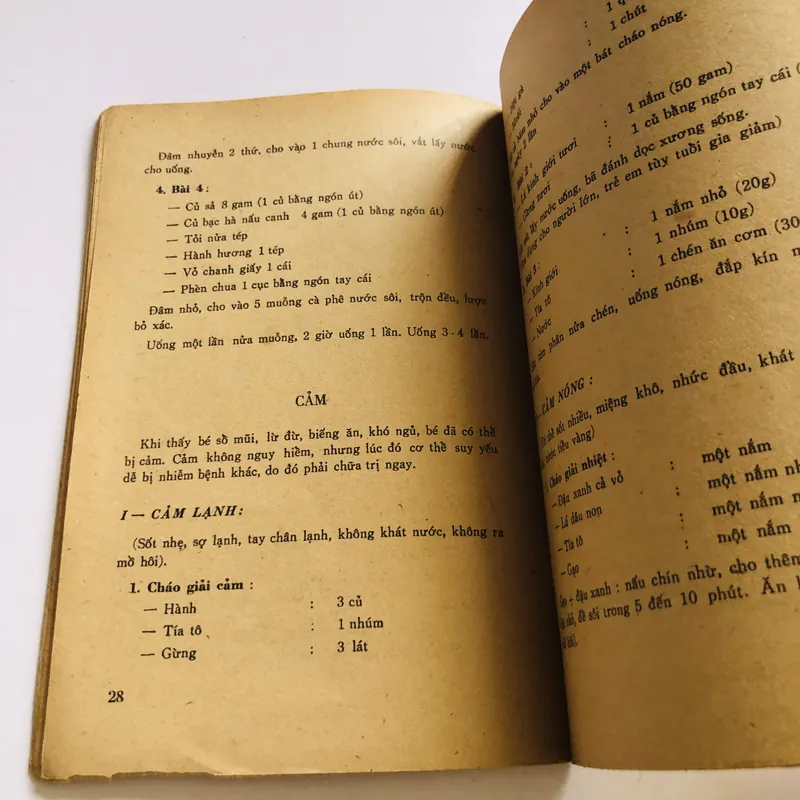 Đâm nhuyễn 2 thứ, cho vào 1 chung nước sôi, vắt lấy nước
cho uống.
4. Bài 4 :
— Củ sả 8 gam (1 củ bằng ngón út)
— Củ bạc hà nấu canh 4 gam (1 củ bằng ngón út)
— Tỏi nửa tép
— Hành hương 1 tép
— Vỏ chanh giấy 1 cái
— Phèn chua 1 cục bằng ngón tay cái
Đâm nhỏ, cho vào 5 muỗng cà phê nước sôi, trộn đều, lược
bỏ xác.
Uống một lần nửa muỗng, 2 giờ uống 1 lần. Uống 3 - 4 lần.
CẢM
Khi thấy bé sổ mũi, lừ đừ, biếng ăn, khó ngủ, bé đã có thể
bị cảm. Cảm không nguy hiểm, nhưng lúc đó cơ thể suy yếu
dễ bị nhiễm bệnh khác, do đó phải chữa trị ngay.
I — CẢM LẠNH :
(Sốt nhẹ, sợ lạnh, tay chân lạnh, không khát nước, không ra
mồ hôi).
1. Cháo giải cảm :
— Hành : 3 củ
— Tía tô : 1 nhúm
— Gừng : 3 lát
28
: 1
: 1 chút
nhỏ cho vào một bát cháo nóng.
2 lần
Bài 2 :
— Lá kinh giới tươi : 1 nắm (50 gam)
— Gừng tươi : 1 củ bằng ngón tay cái (
lấy nước uống, bã đánh dọc xương sống.
cho người lớn, trẻ em tùy tuổi gia giảm)
Bài 3 :
— Kinh giới : 1 nắm nhỏ (20g)
— Tía tô : 1 nhúm (10g)
— Nước : 1 chén ăn cơm (30
còn phân nửa chén, uống nóng, đắp kín
— CẢM NÓNG :
sốt nhiều, miệng khô, nhức đầu, khát
nước tiểu vàng)
Cháo giải nhiệt :
— Đậu xanh cả vỏ : một nắm
— Lá dâu non : một nắm
— Tía tô : một nắm
— Gạo : một nắm
+ đậu xanh : nấu chín nhừ, cho thêm
nhỏ, để sôi trong 5 đến 10 phút. Ăn